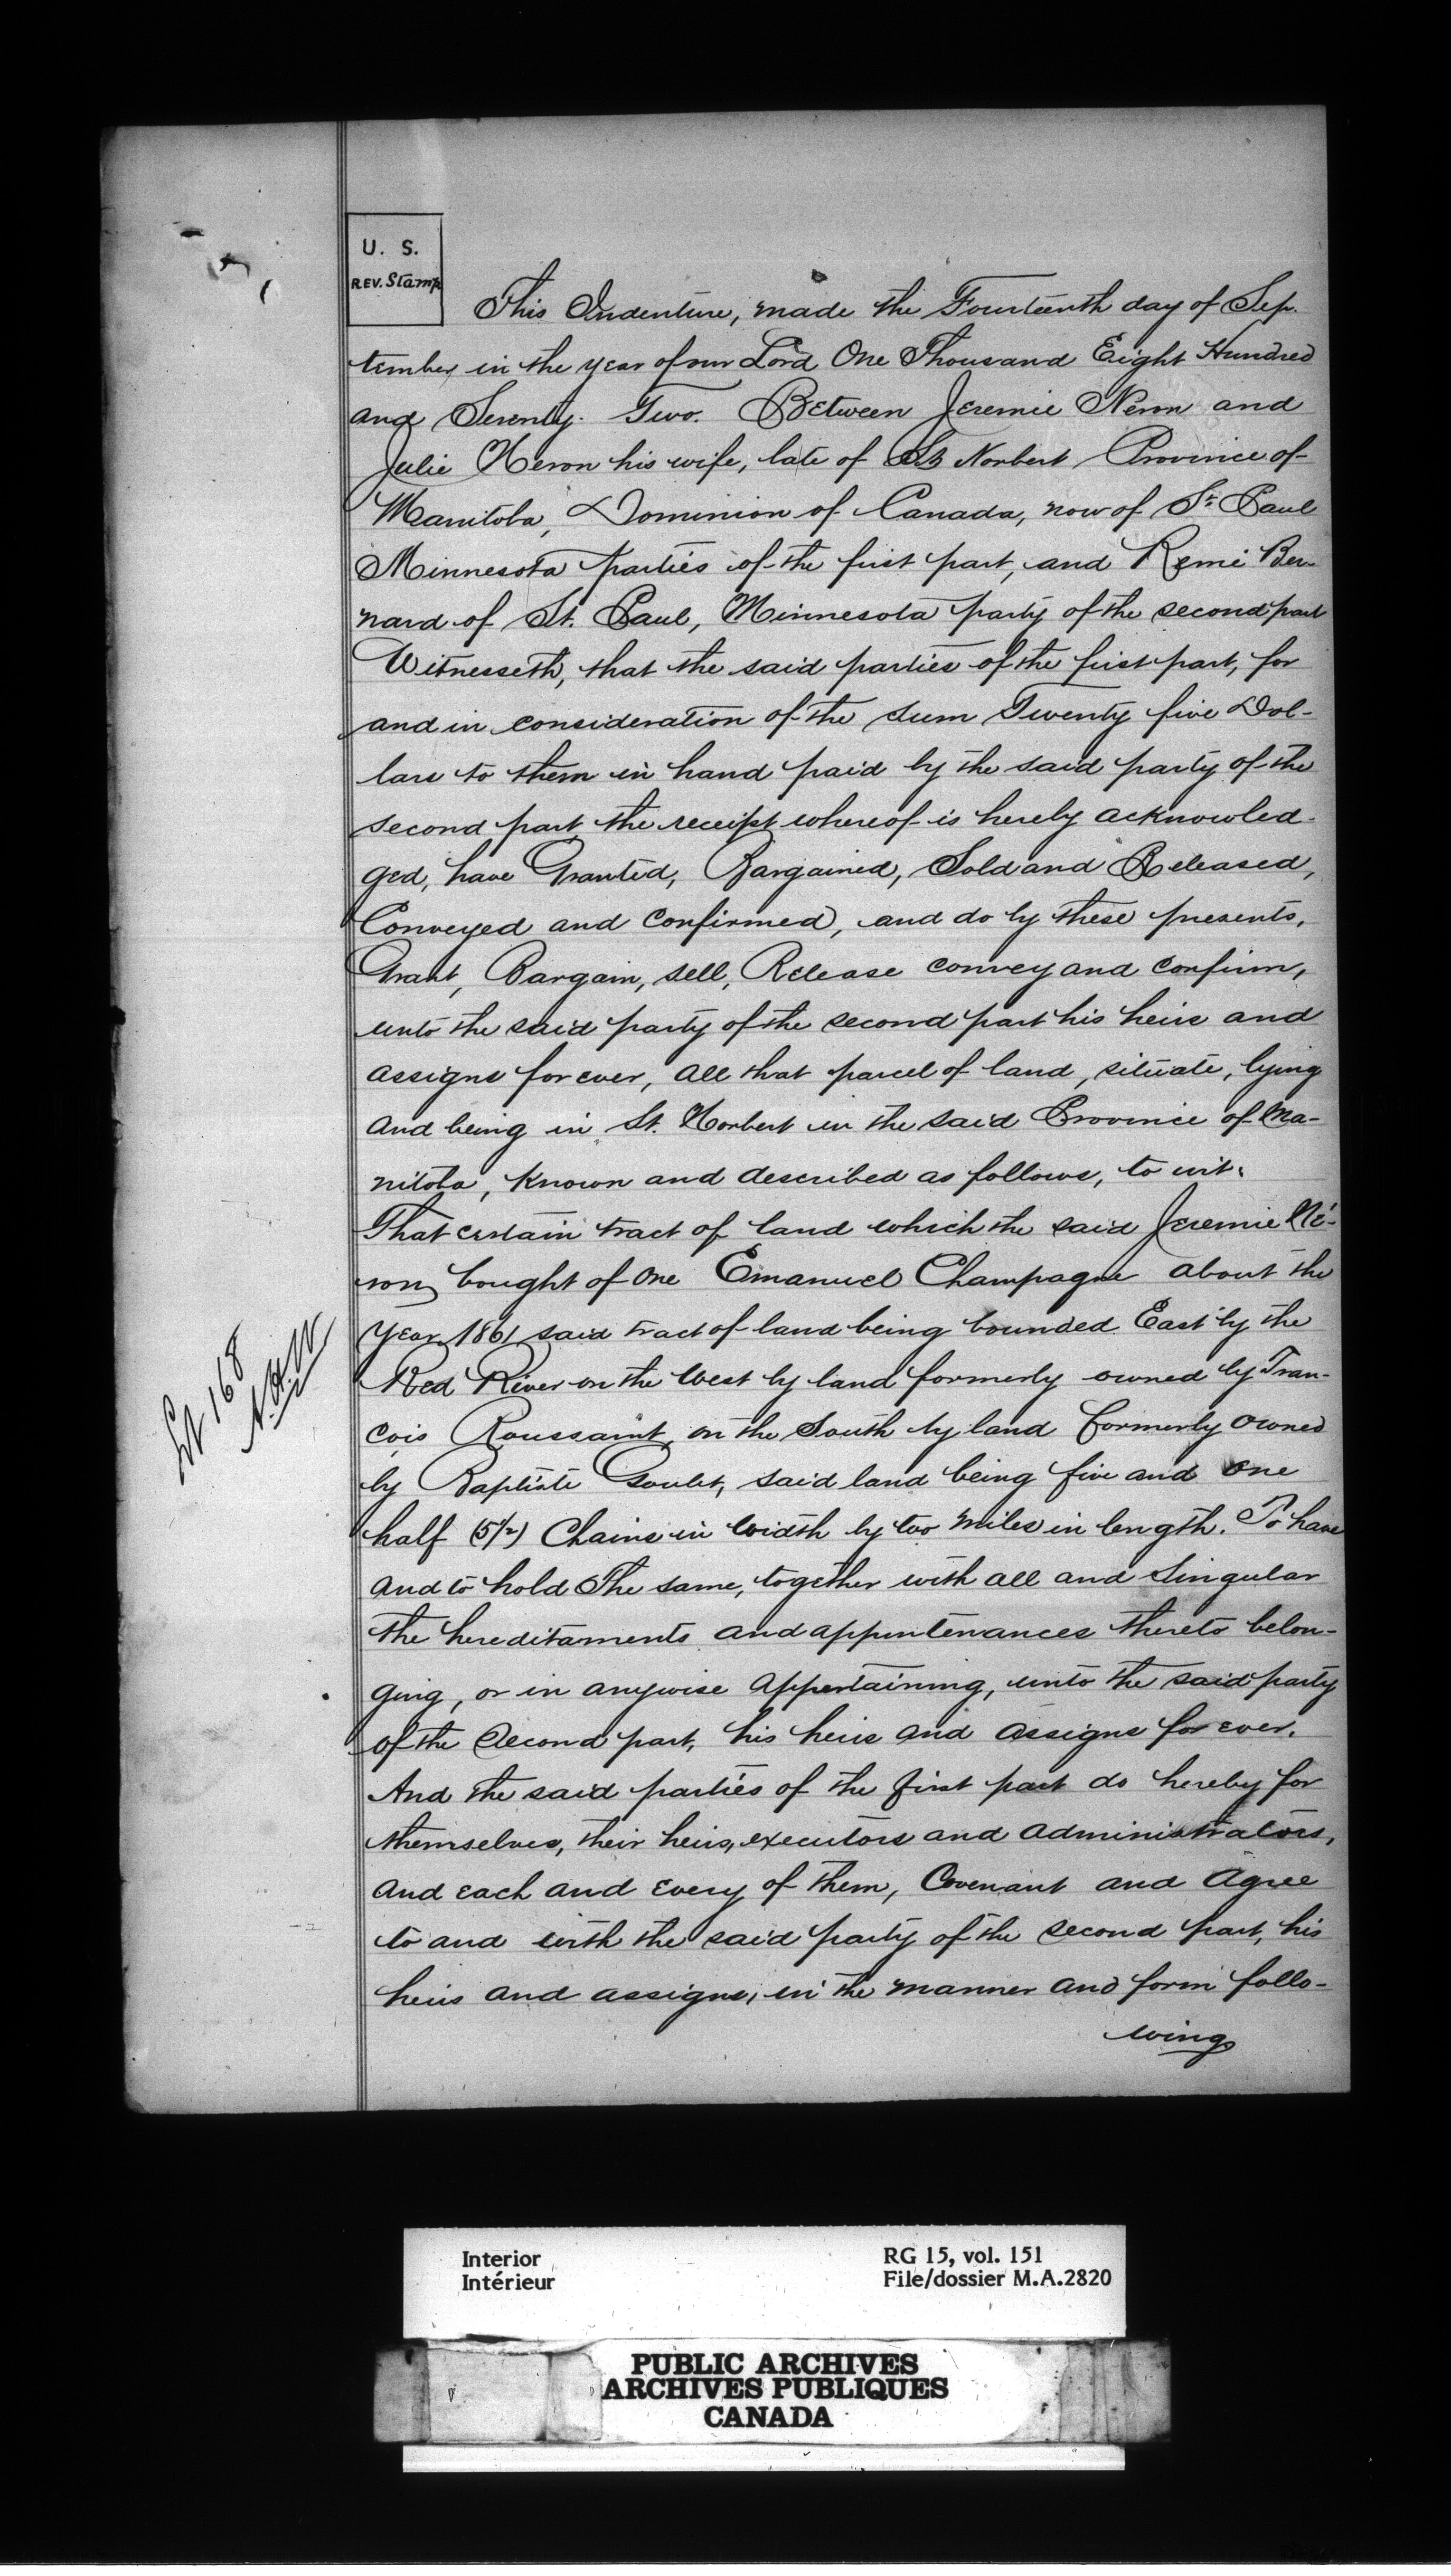 U. S.
REV. Stamp
This Indenture, made the Fourteenth day of Sep-
tember in the year of our Lord One Thousand Eight Hundred
and Seventy. Two. Between Jeremie Neron and
Julie Neron his wife, late of St Norbert Province of
Manitoba, Dominion of Canada, now of St Paul
Minnesota parties of the first part, and Remi Ber-
nard of St. Paul, Minnesota party of the second part
Witnesseth, that the said parties of the first part, for
and in consideration of the sum Twenty five Dol-
lars to them in hand paid by the said party of the
second part the receipt whereof is hereby acknowled-
ged, have Granted, Bargained, Sold and Released,
Conveyed and confirmed, and do by these presents,
Grant, Bargain, sell, Release convey and confirm,
unto the said party of the second part his heirs and
assigns for ever, all that parcel of land, situate, lying
and being in St. Norbert in the said Province of Ma-
nitoba, known and described as follows, to wit:
That certain tract of land which the said Jeremie Né-
ron bought of one Emanuel Champagne about the
year 1861 said tract of land being bounded East by the
Red River on the West by land formerly owned by Fran-
cois Roussaint, on the South by land formerly owned
by Baptiste Goulet, said land being five and one
half (5½) Chains in width by two miles in length. To have
and to hold The same, together with all and Singular
the hereditaments and appurtenances thereto belon-
ging, or in anywise appertaining, unto the said party
of the second part, his heirs and assigns for ever.
And the said parties of the first part do hereby for
themselves, their heirs, executors and administrators,
and each and every of them, Covenant and Agree
to and with the said party of the second part, his
heirs and assigns, in the manner and form follo-
wing
Lt 168
A.H.W
Interior
Intérieur
RG 15, vol. 151
File/dossier M.A.2820
PUBLIC ARCHIVES
ARCHIVES PUBLIQUES
CANADA